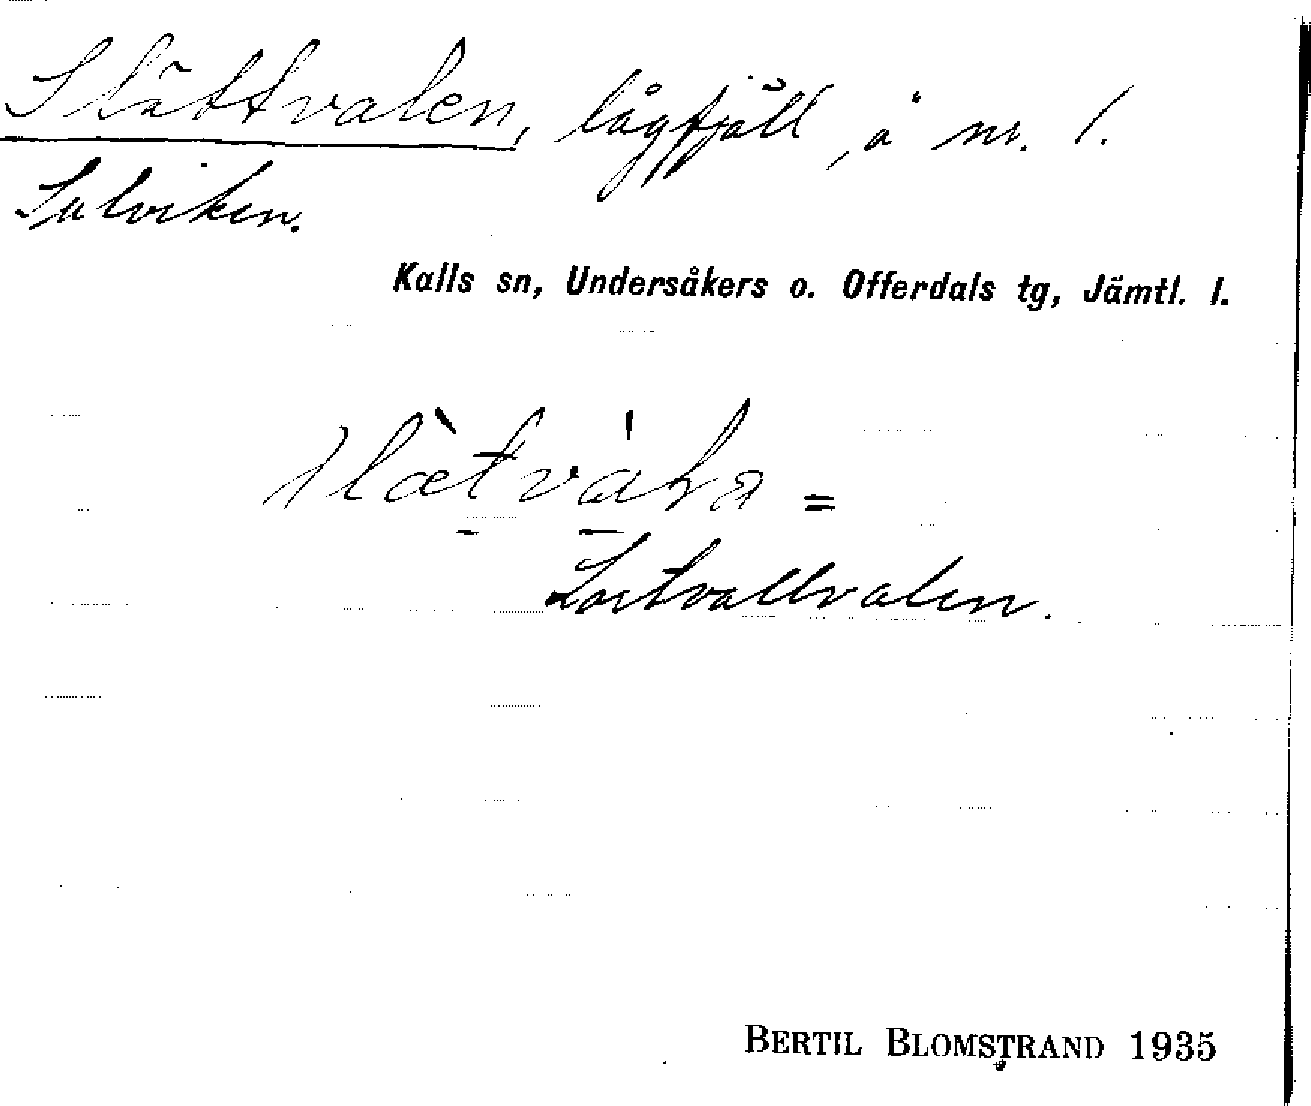 Slättvalen, lågfjäll, å nr. 1.
Sulviken.
Kalls sn, Undersåkers o. Offerdals tg, Jämtl. l.
=
Lortvallvalen.
BERTIL BLOMSTRAND 1935